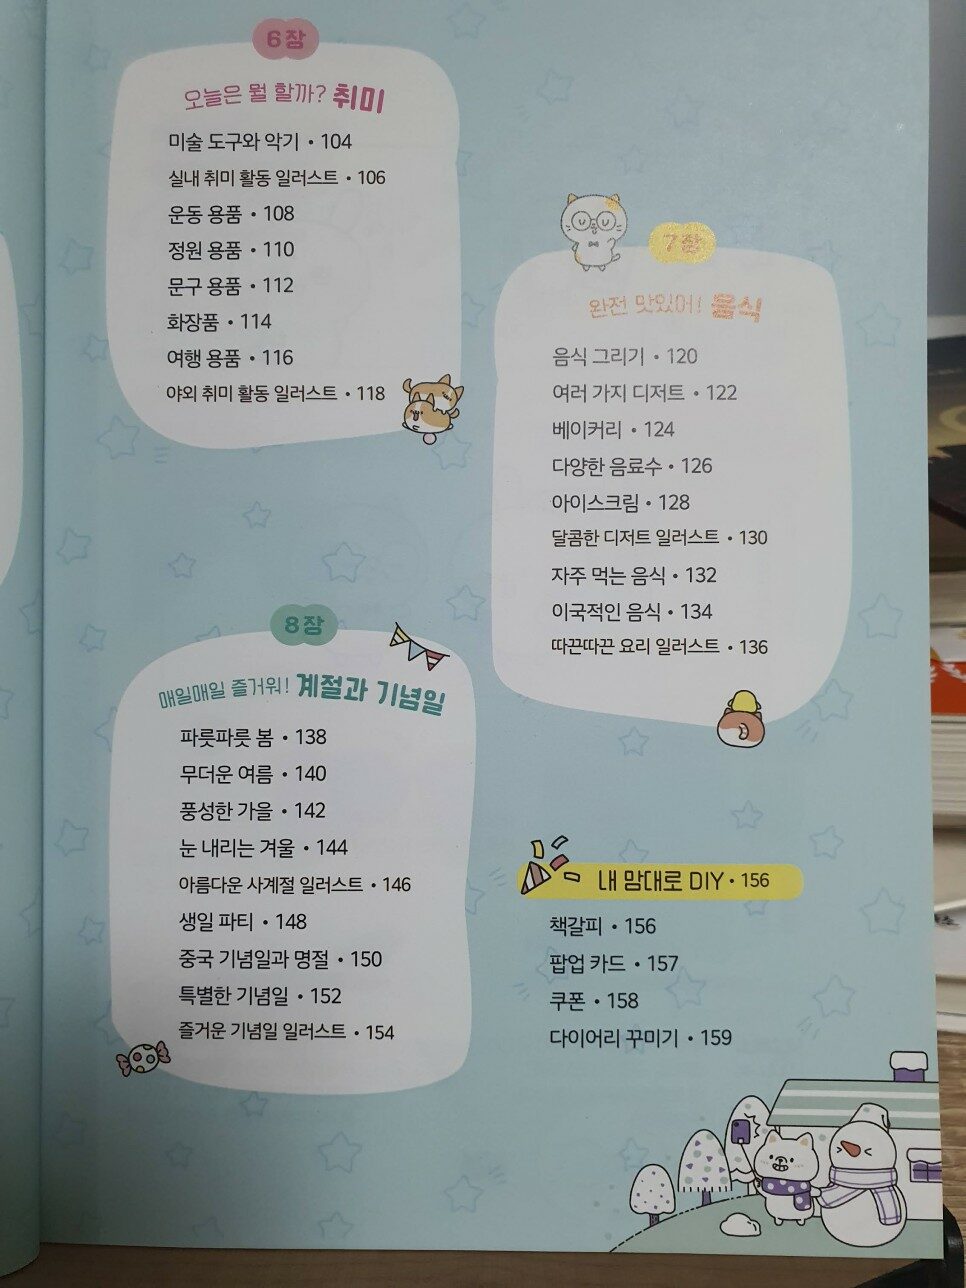 6장
오늘은 뭘 할까? 취미
미술 도구와 악기 • 104
실내 취미 활동 일러스트 • 106
운동 용품 • 108
정원 용품 • 110
문구 용품 • 112
화장품 • 114
여행 용품 • 116
야외 취미 활동 일러스트 • 118
7장
완전 맛있어! 음식
음식 그리기 • 120
여러 가지 디저트 • 122
베이커리 • 124
다양한 음료수 • 126
아이스크림 • 128
달콤한 디저트 일러스트 • 130
자주 먹는 음식 • 132
이국적인 음식 • 134
따끈따끈 요리 일러스트 • 136
8장
매일매일 즐거워! 계절과 기념일
파릇파릇 봄 • 138
무더운 여름 • 140
풍성한 가을 • 142
눈 내리는 겨울 • 144
아름다운 사계절 일러스트 • 146
생일 파티 • 148
중국 기념일과 명절 • 150
특별한 기념일 • 152
즐거운 기념일 일러스트 • 154
내 맘대로 DIY • 156
책갈피 • 156
팝업 카드 • 157
쿠폰 • 158
다이어리 꾸미기 • 159